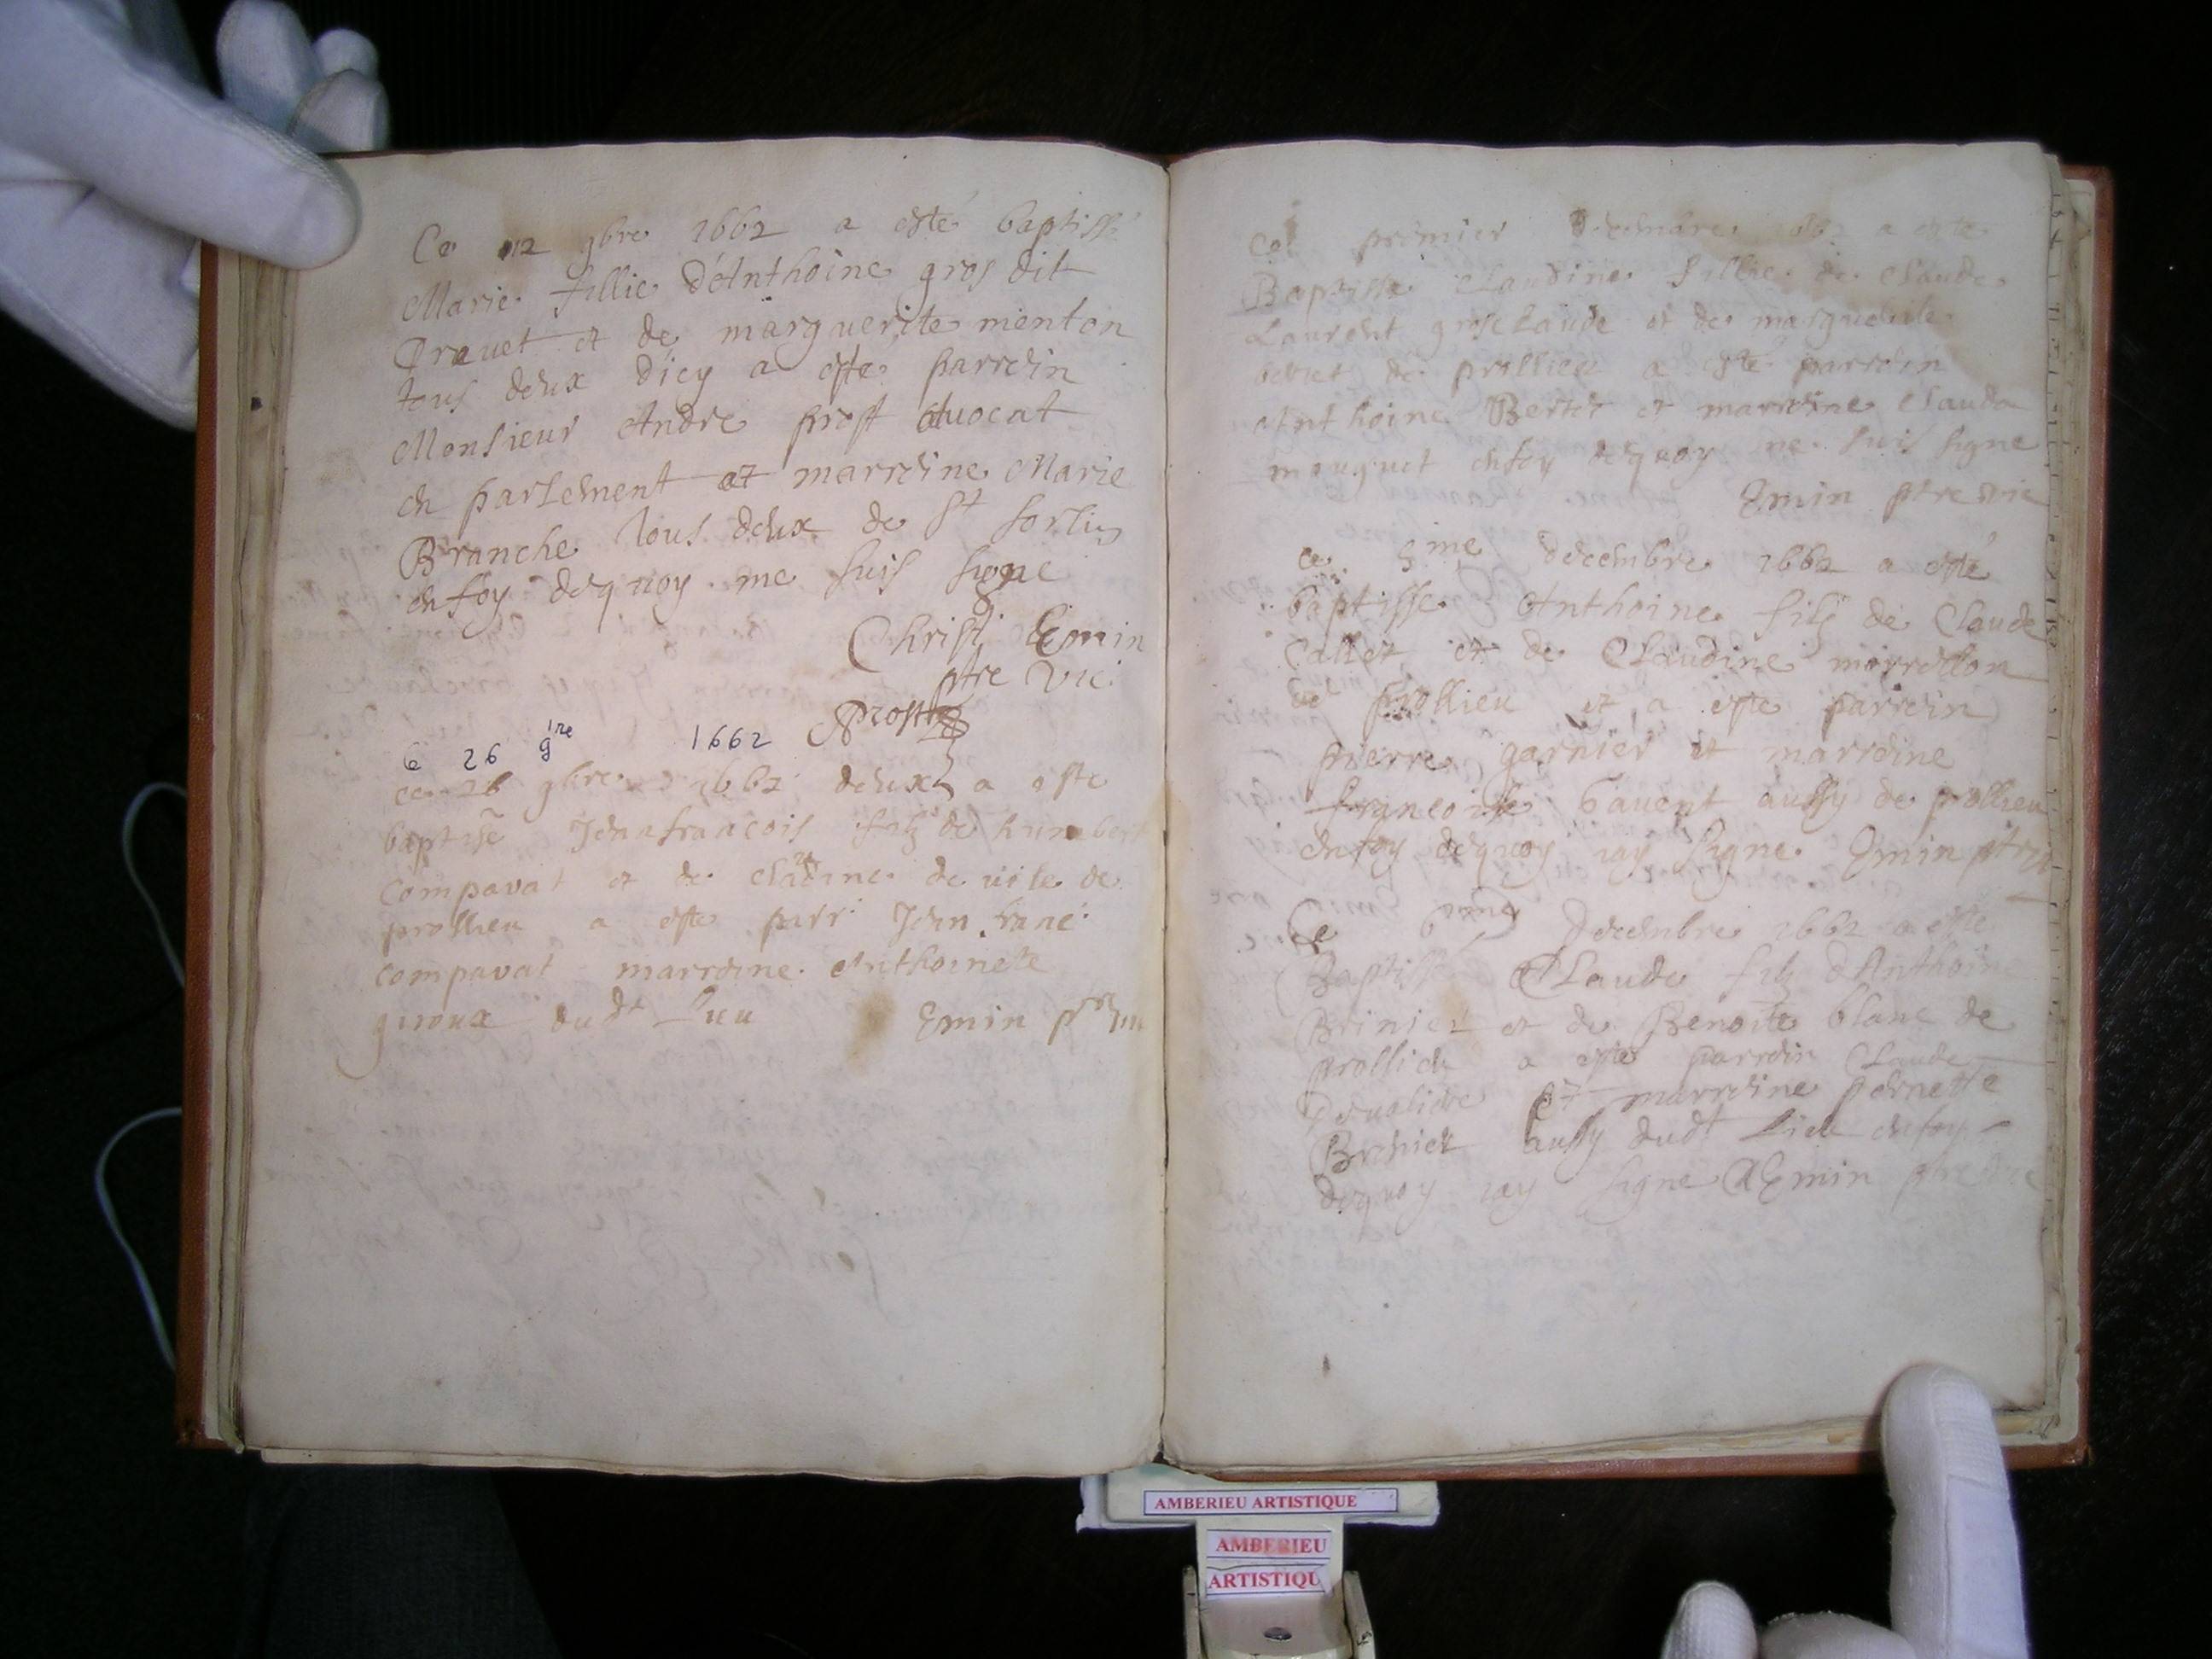 Ce 12 9bre 1662 a esté baptissé
Marie fillie d'Anthoine gros dit
Dravet et de marguerite menton
tous deux dicy a este parrein
Monsieur Andre prost Avocat
en parlement et marreine Marie
Branche tous deux de St sorlin
en foy dequoy me suis signe
Christ. Emin
ptre vic:
Aprost
Ce 26 9bre 1662
ce 26 gbre 1662 deux a este
baptisé Jean francois filz de humbert
Compavat et de cladine de
prollieu a este parr: Jean franc:
compavat marreine Anthoinete
giroux dudt lieu Emin ptre
Ce premier decembre 1662 a este
Baptisse Claudine fillie de Claude
Laurent grosclaude et de marguerite
de prollieu a esté parrein
Anthoine Bertet et marreine Clauda
mouguet enfoy dequoy me suis signe
Emin ptre vic
ce 3me decembre 1662 a esté
baptisse Anthoine filz de Claude
Callet et de Claudine
de prollieu et a este parrein
pierre garnier et marreine
francoise bavent aussy de prollieu
enfoy dequoy iay signe Emin ptre
Ce 6me Decembre 1662 a este
Baptissé Claude filz dAnthoine
Brinier et de Benoite blanc de
prollieu a este parrein Claude
et marreine pernette
aussy dudt lieu enfoy
dequoy iay signe Emin ptre vic
AMBERIEU ARTISTIQUE
AMBERIEU
ARTISTIQU